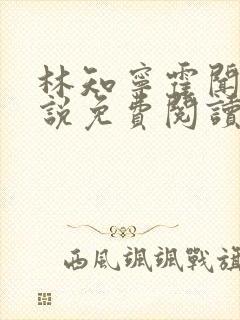 林知寧霆聞
說免費閱讀
西風颯颯戰旗